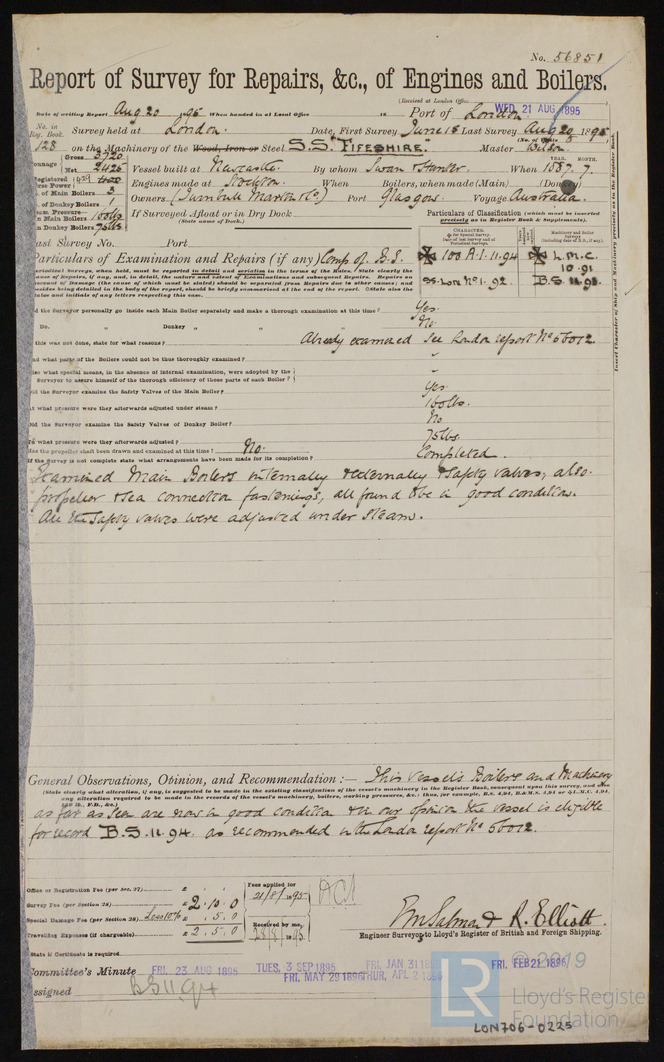 No. 56851
Report of Survey for Repairs, &c., of Engines and Boilers.
(Received at London Office WED. 21 AUG 1895
Date of writing Report Aug 20 1895 When handed in at Local Office 18 Port of London.
No. in Reg. Book. Survey held at London. Date, First Survey June 18 Last Survey Aug 20 1895
128 on the Machinery of the Wood, Iron or Steel S.S. "FIFESHIRE." Master Wilson
Gross 3720
Net 2425 Vessel built at Newcastle. By whom Swan & Hunter. When 1887. 7.
YEAR. MONTH.
Registered
Engines made at Stockton. When Boilers, when made (Main) (Donkey)
of Main Boilers 2
of Donkey Boilers 1 Owners (Turnbull Martin & Co.) Port Glasgow. Voyage Australia.
Main Boilers 160lbs If Surveyed Afloat or in Dry Dock
(State name of Dock.)
in Donkey Boilers 75lbs
Particulars of Classification (which must be inserted precisely as in Register Book & Supplements).
Last Survey No. Port
Particulars of Examination and Repairs (if any) Comp of B.S.
CHARACTER.
Machinery and Boiler Surveys
100 A.1. 11.94 L.M.C.
10.91
SS. Lon No 1. 92 B.S. 11.93
Did the Surveyor personally go inside each Main Boiler separately and make a thorough examination at this time? Yes.
Do. Donkey " " No.
If this was not done, state for what reasons? Already examined See London report No 56012
And what parts of the Boilers could not be thoroughly examined? "
Also what special means, in the absence of internal examination, were adopted by the
Surveyor to assure himself of the thorough efficiency of those parts of each Boiler? "
Did the Surveyor examine the Safety Valves of the Main Boiler? Yes
At what pressure were they afterwards adjusted under steam? 160lbs.
Did the Surveyor examine the Safety Valves of Donkey Boiler? No
To what pressure were they afterwards adjusted? 75lbs.
Has the propeller shaft been drawn and examined at this time? No.
If the Survey is not complete state what arrangements have been made for its completion? Completed.
Examined Main Boilers internally & externally & safety valves, also
propeller & sea connection fastenings, all found to be in good condition.
All the safety valves were adjusted under steam.
General Observations, Opinion, and Recommendation:— This vessel's Boilers and Machinery
(State clearly what alteration, if any, is suggested to be made in the existing classification of the vessel's machinery in the Register Book, consequent upon this survey, and also
any alteration required to be made in the records of the vessel's machinery, boilers, working pressures, &c.: thus, for example, B.S. 4,94, B.&M.S. 4,94 or L.M.C. 4,94,
as far as seen are now in good condition & in our opinion the vessel is eligible
for record B.S. 11.94. as recommended in the London report No 56012.
Office or Registration Fee (per Sec. 27) £
Survey Fee (per Section 28) £ 2.10.0
Special Damage Fee (per Section 28) Less 10% £ .5.0
Travelling Expenses (if chargeable) £ 2.5.0
Fees applied for
21/8/1895
Received by me,
State if Certificate is required
E. M. Salmon & R. Elliott.
Engineer Surveyor to Lloyd's Register of British and Foreign Shipping.
Committee's Minute FRI. 23 AUG 1895 TUES. 3 SEP 1895 FRI. JAN 31 1896 FRI. FEB 21 1896
FRI. MAY 29 1896 THUR. APL 2 1896
Assigned BS 11,94
© 2019
LR
Lloyd's Register
Foundation
LON706-0225